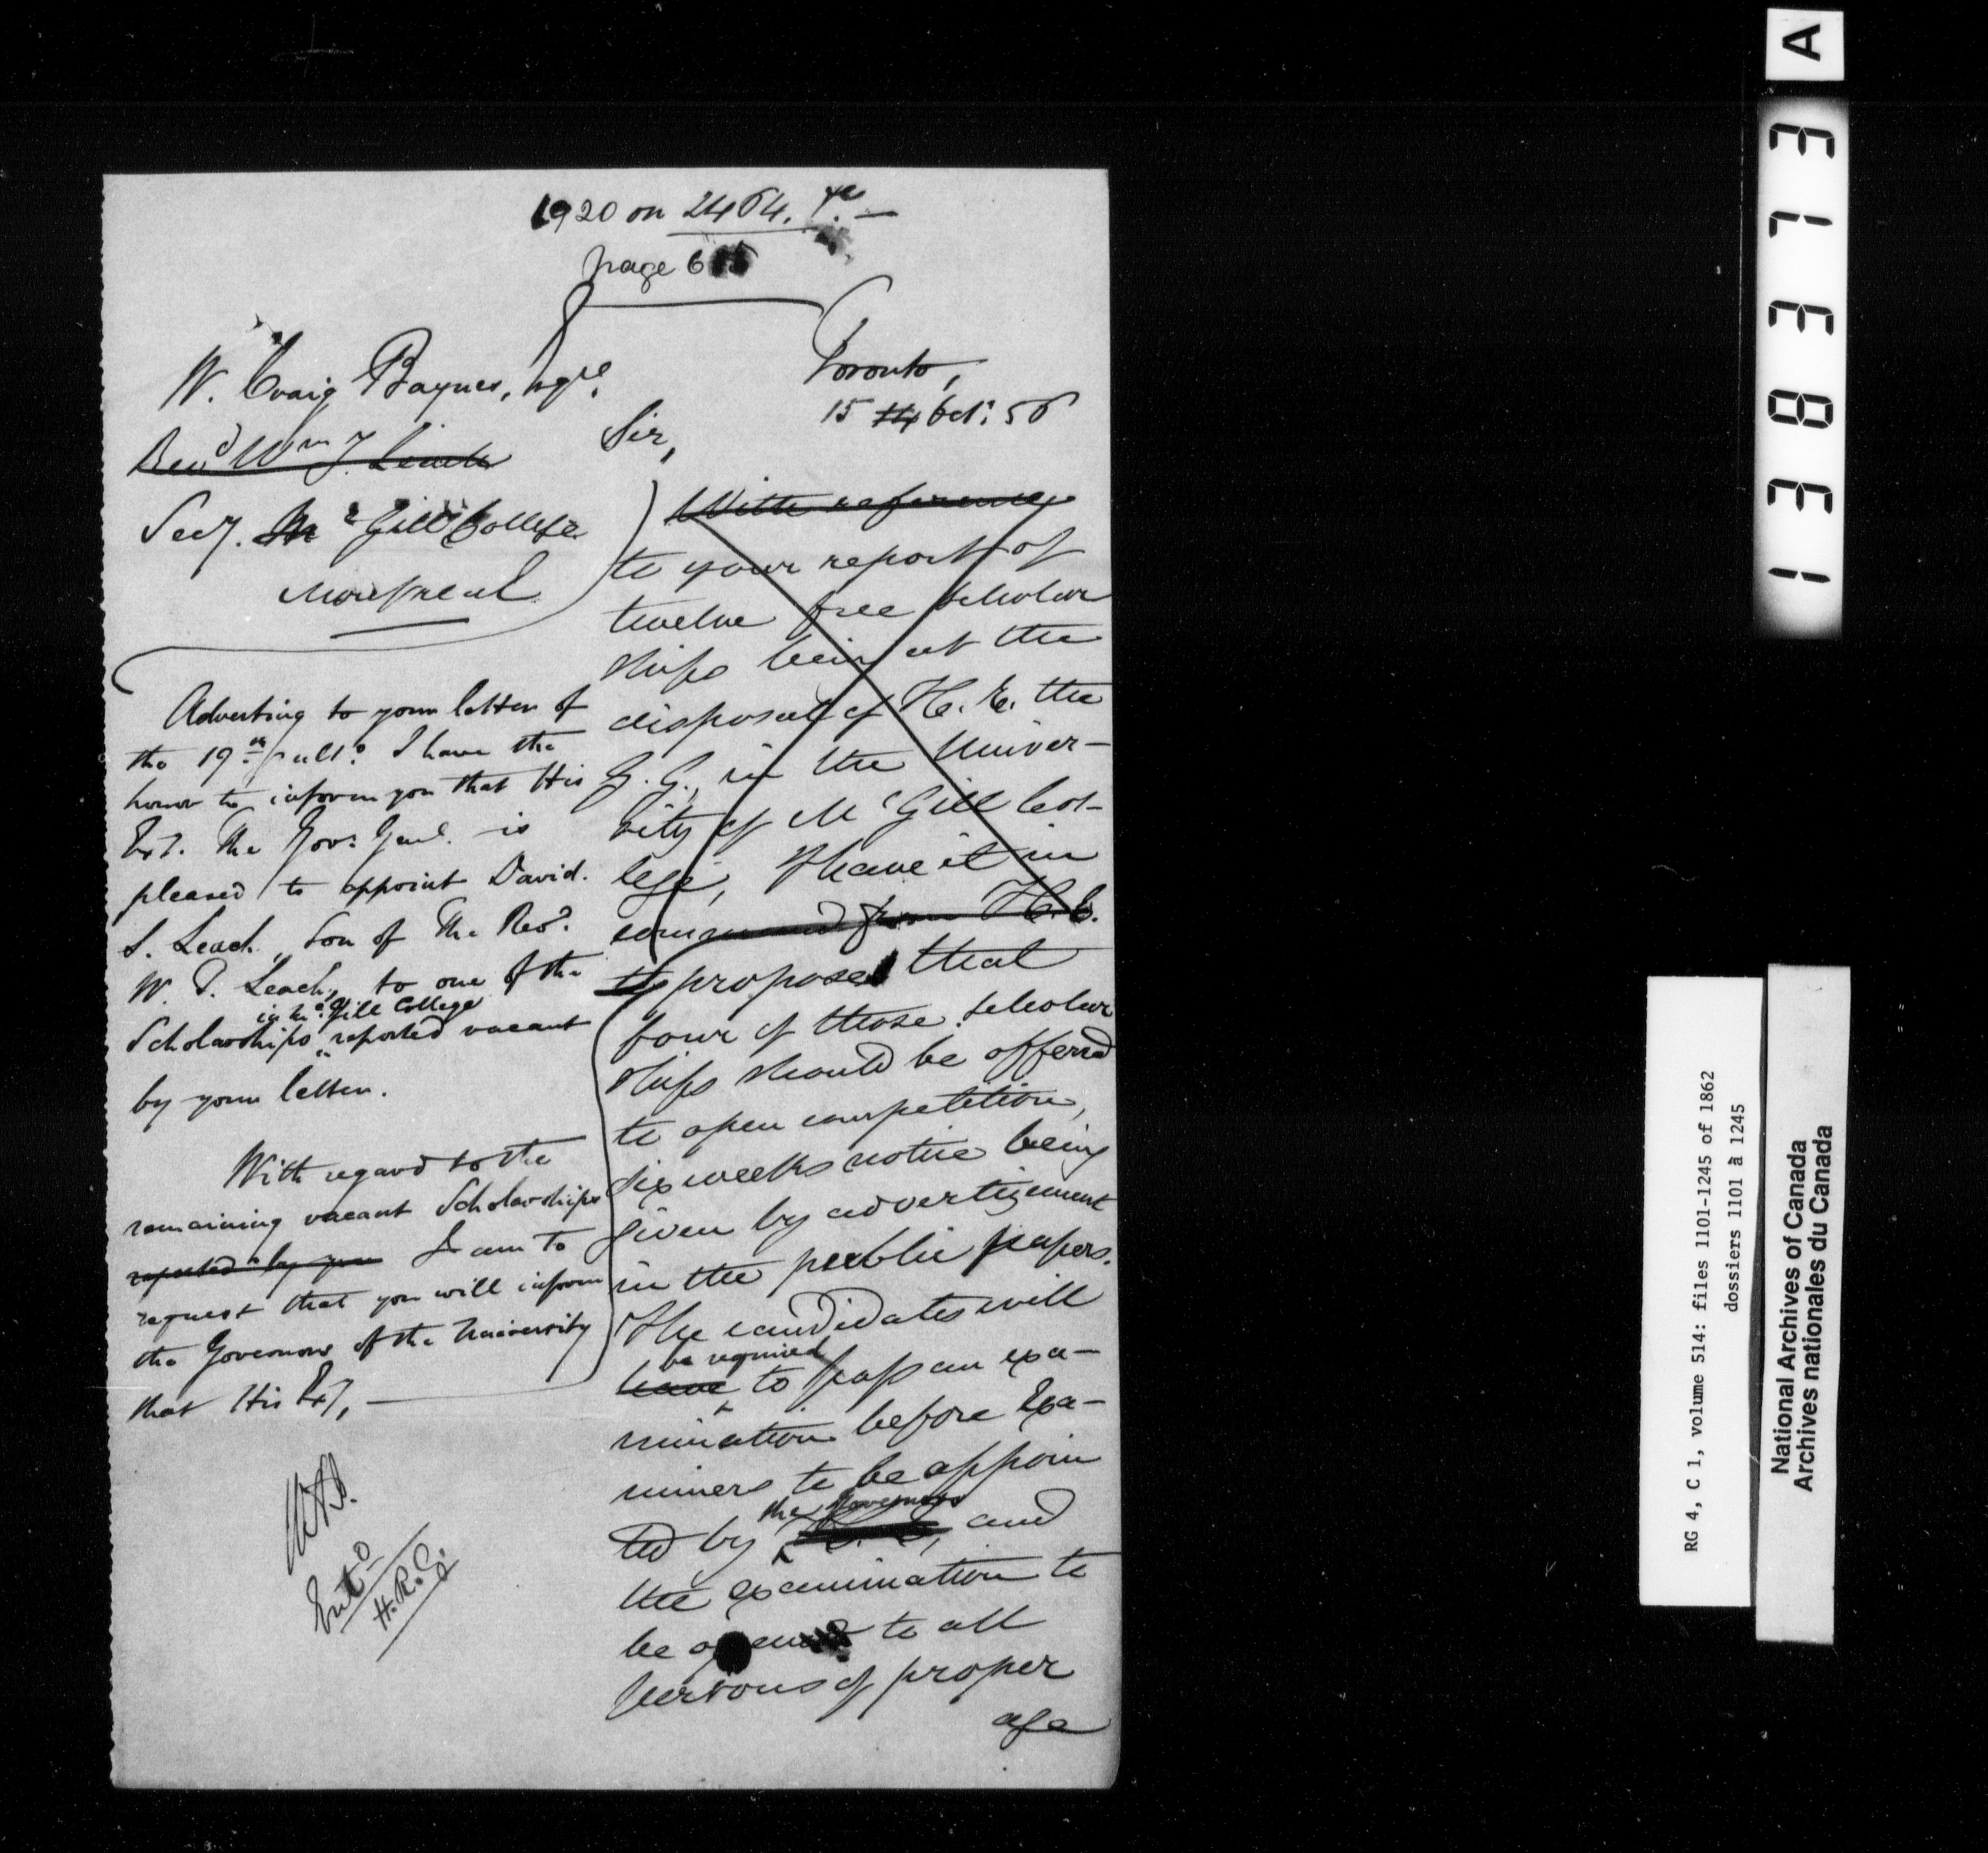 1920 on 2464.
page 615
W. Craig Baynes, Esqre.
Revd Wm T. Leach
Secy. McGill College
Montreal
Toronto,
15 14 Oct: 56
Sir,
With reference
to your report of
twelve free scholar
ships being at the
disposal of H. E. the
G. G., in the Univer-
sity of McGill Col-
lege, I have it in
command from H. E.
to propose that
four of those scholar
ships should be offered
to open competition,
six weeks notice being
given by advertizement
in the public papers.
The candidates will
be required
have to pass an exa-
mination before Exa-
miners to be appoin
the Governors
ted by and
the examination to
be open to all
persons of proper
age
Adverting to your letter of
the 19th ulto. I have the
honor to inform you that His
Exy. the Govr. Genl. is
pleased to appoint David.
S. Leach, Son of The Revd.
W. T. Leach, to one of the
in McGill College
Scholarships reported vacant
by your letter.
With regard to the
remaining vacant Scholarships
reported by you I am to
request that you will inform
the Governors of the University
that His Exy,
Entd
H.R.G.
A
138373
RG 4, C 1, volume 514: files 1101-1245 of 1862
dossiers 1101 à 1245
National Archives of Canada
Archives nationales du Canada